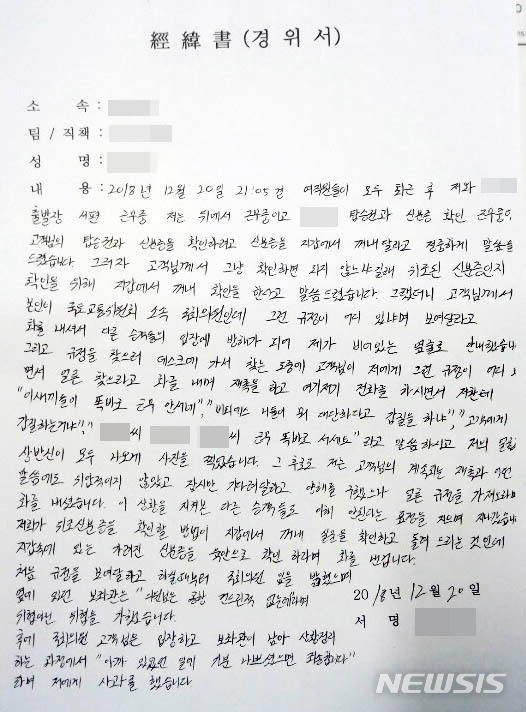 經緯書 (경위서)
소 속 :
팀 / 직책 :
성 명 :
내 용 : 2018년 12월 20일 21:05경 여직원들이 모두 퇴근 후 저와
출발장 서편 근무중 저는 뒤에서 근무중이고 탑승권과 신분증 확인 근무중
고객님의 탑승권과 신분증을 확인하려고 신분증을 지갑에서 꺼내달라고 정중하게 말씀을
드렸습니다. 그러자 고객님께서 그냥 확인하면 되지 않느냐길래 위조된 신분증인지
확인을 위해 지갑에서 꺼내 확인을 한다고 말씀드렸습니다. 그랬더니 고객님께서
본인이 국토교통위원회 소속 국회의원인데 그런 규정이 어디 있냐며 보여달라고
화를 내셔서 다른 승객들의 입장에 방해가 되어 제가 비어있는 옆으로 안내했습니다
그리고 규정을 찾으러 데스크에 가서 찾는 도중에 고객님이 저에게 그런 규정이 어디
면서 얼른 찾으라고 화를 내며 재촉을 하고 여기저기 전화를 하시면서 저한테
"이새끼들이 똑바로 근무 안서네", "너희들이 뭐 대단하다고 갑질을 하냐", "고객에게
갑질하는거냐", " 씨 씨 근무 똑바로 서세요" 라고 말씀하시고 저의 얼굴
상반신이 모두 나오게 사진을 찍었습니다. 그 후로도 저는 고객님의 계속되는 재촉과
말씀에도 잠시만 기다려달라고 양해를 구했으나 얼른 규정을 가져오라며
화를 내셨습니다. 이 상황을 지켜본 다른 승객들도 이해 안된다는 표정을 지으며 지나갔습니
저희가 위조신분증을 확인할 방법이 지갑에서 꺼내 확인하고 돌려 드리는 것인데
지갑속에 있는 가려진 신분증을 육안으로 확인 하라며 화를 냈습니다.
처음 규정을 보여달라고 하실때부터 국회의원 임을 밝혔으며
옆에 있던 보좌관은 "의원님은 공항 건드린적 없는데"라며
위협아닌 위협을 가했습니다.
2018년 12월 20일
서 명
후에 국회의원 고객님은 입장하고 보좌관이 남아 상황정리
하는 과정에서 "아까 있었던 일에 기분 나쁘셨으면 죄송합니다"
라며 저에게 사과를 했습니다
NEWSIS